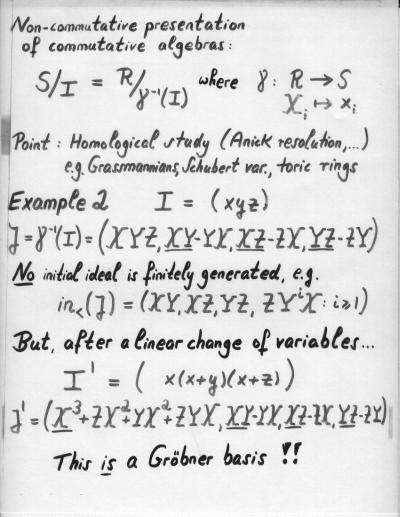 Non-commutative presentation
of commutative algebras:
S/I = R/γ⁻¹(I) where γ: R → S
Xᵢ ↦ xᵢ
Point: Homological study (Anick resolution,...)
e.g. Grassmannians, Schubert var., toric rings
Example 2 I = (xyz)
J = γ⁻¹(I) = (XYZ, XY-YX, XZ-ZX, YZ-ZY)
No initial ideal is finitely generated, e.g.
in<(J) = (XY, XZ, YZ, ZYⁱX : i≥1)
But, after a linear change of variables...
I' = ( x(x+y)(x+z) )
J' = (X³+ZX²+YX²+ZYX, XY-YX, XZ-ZX, YZ-ZY)
This is a Gröbner basis !!